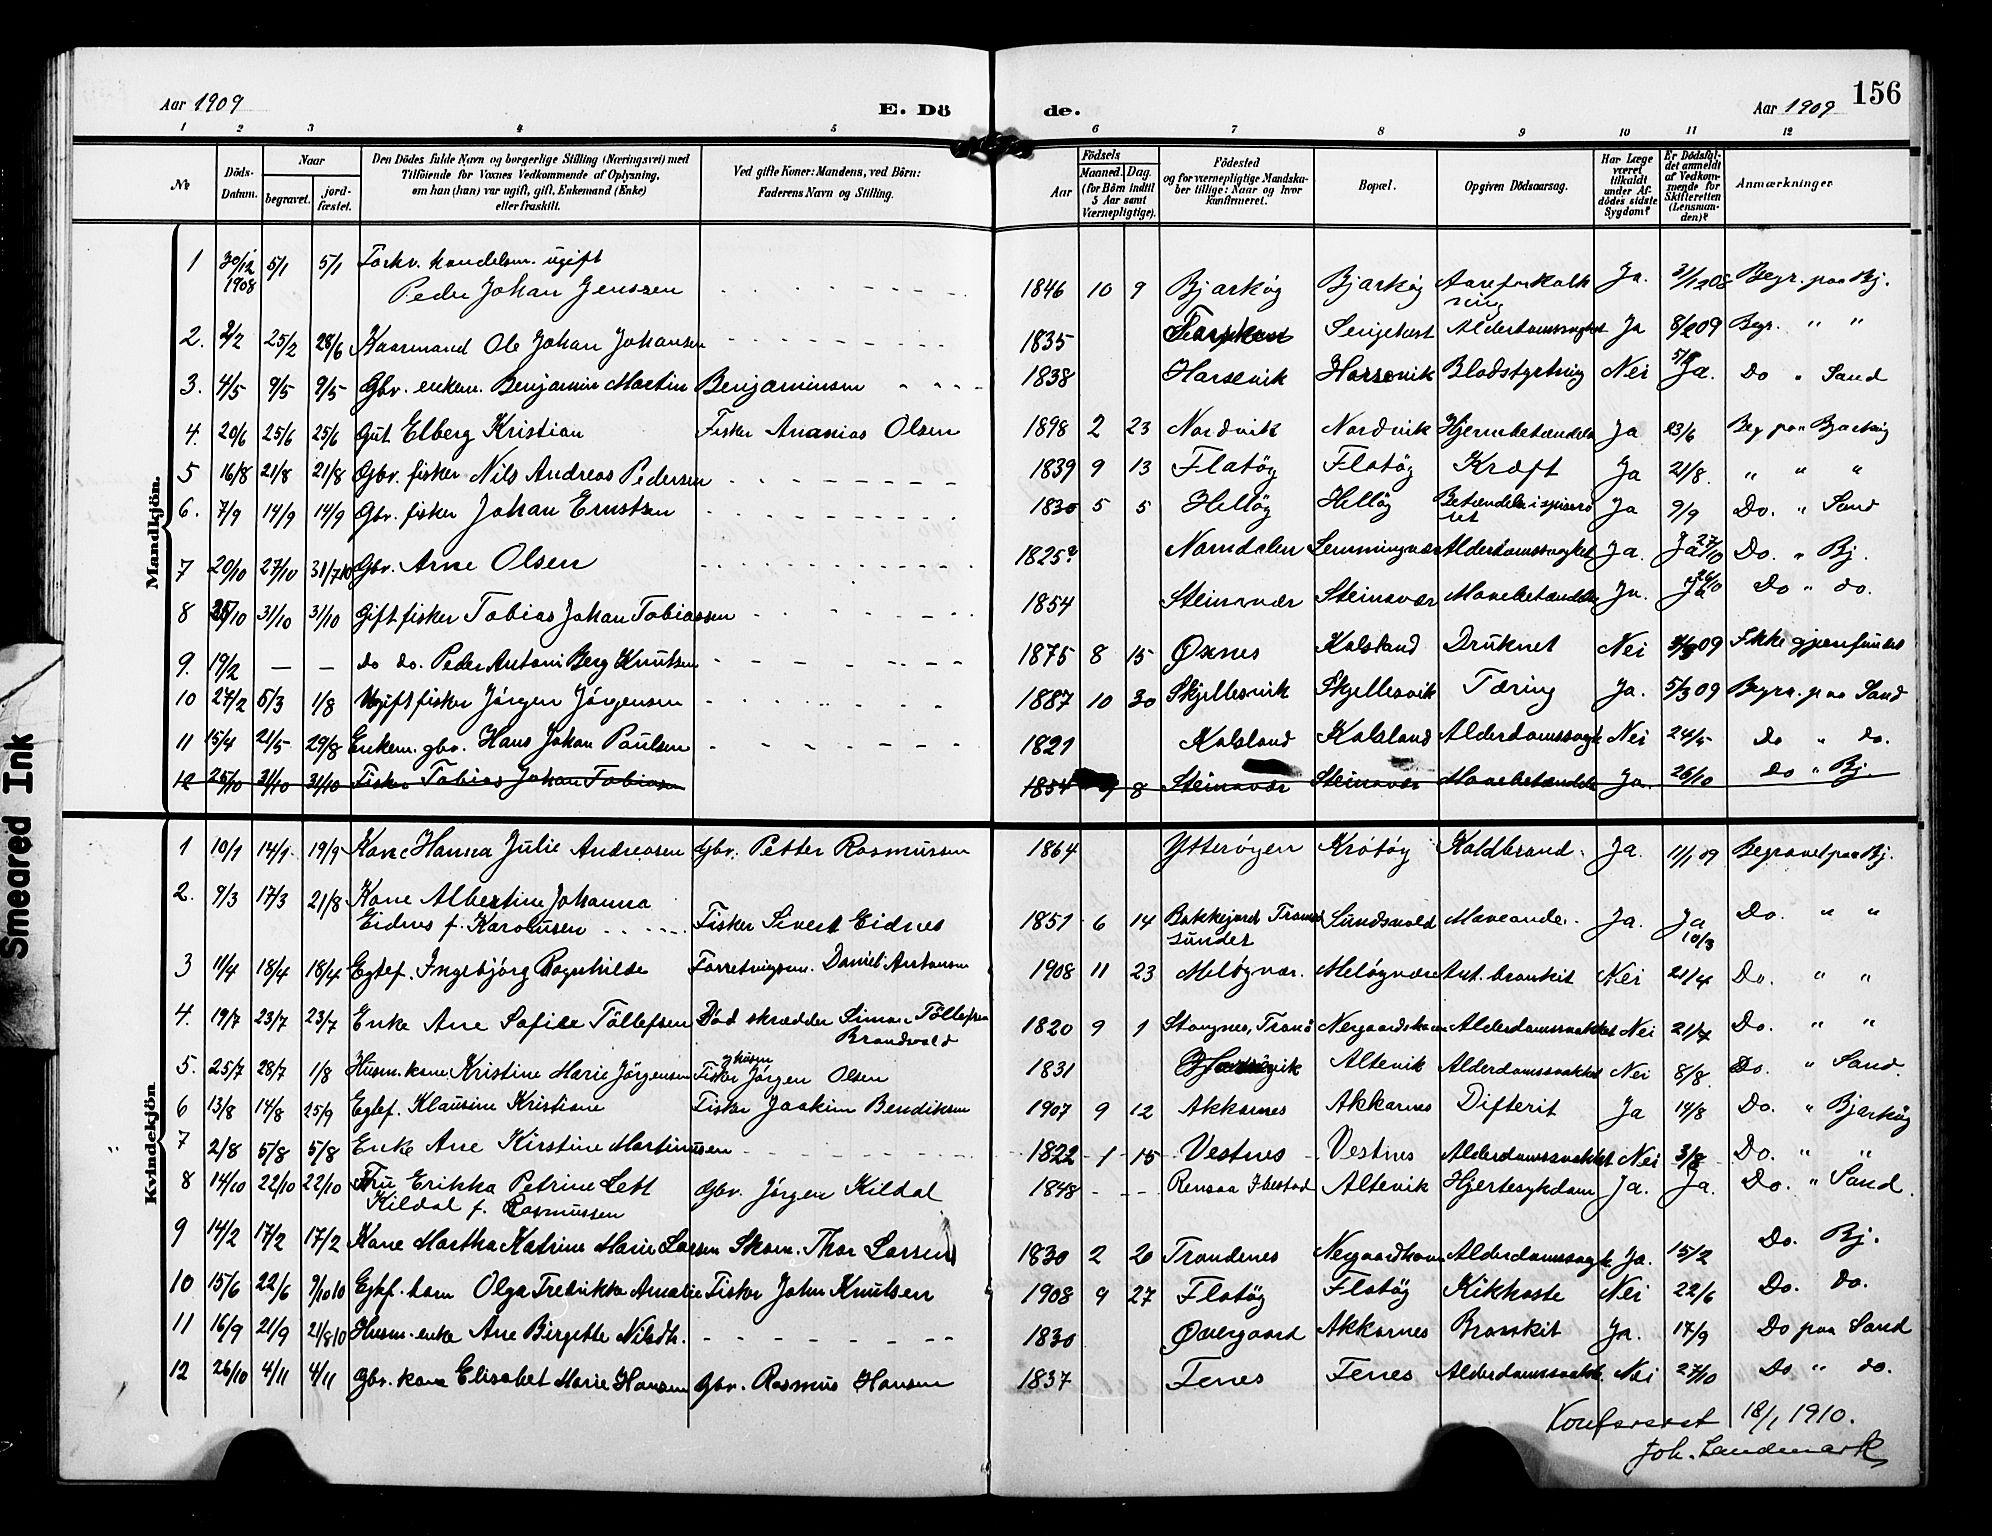 Aar 1909
E. Dö
de.
Aar 1909
156
1 2 3 4 5 6 7 8 9 10 11 12
No
Döds-Datum.
Naar
begravet.
jord-fæstet.
Den Dödes fulde Navn og borgerlige Stilling (Næringsvei) med
Tilföiende for Voxnes Vedkommende af Oplysning,
om han (hun) var ugift, gift, Enkemand (Enke)
eller fraskilt.
Ved gifte Koner: Mandens, ved Börn:
Faderens Navn og Stilling.
Födsels
Aar
Maaned. Dag.
(for Börn indtil
5 Aar samt
Værnepligtige).
Födested
og for værnepligtige Mandska-
ber tillige: Naar og hvor
konfirmeret.
Bopæl.
Opgiven Dödsaarsag.
Har Læge
været
tilkaldt
under Af-
dödes sidste
Sygdom?
Er Dödsfal-
det anmeldt
af Vedkom-
mende for
Skifteretten
(Lensman-
den)?
Anmærkninger
Mandkjön.
1 30/12 1908 5/1 5/1 Forhv. handelsm. ugift
Peder Johan Jenssen 1846 10 9 Bjarköy Bjarköy Aareforkalkning Ja. 31/12 08 Begr. paa Bj.
2. 2/2 25/2 28/6 Kaarmand Ole Johan Johansen 1835 Sengehest Alderdomssvaghet Ja 8/2 09 Begr. " "
3. 4/5 9/5 9/5 Gbr. enkem. Benjamin Martin Benjaminsen 1838 Harsevik Harsevik Blodstyrtning Nei Ja. Do " Sand
4. 20/6 25/6 25/6 Gut Elberg Kristian Fisker Ananias Olsen 1898 2 23 Nordvik Nordvik Hjernebetændelse Ja 23/6 Beg paa Bjarköy
5 16/8 21/8 21/8 Gbr. fisker Nils Andreas Pedersen 1839 9 13 Flatöy Flatöy Kræft Ja 21/8. " " "
6. 7/9 14/9 14/9 Gbr. fisker Johan Ernstsen 1830 5 5 Hellöy Hellöy Betændelse i spiseröret Ja 9/9 Do. " Sand
7 20/10 27/10 31/7 10 Gbr. Arne Olsen 1825? Namdalen Lemmingvær Alderdomssvaghet Ja. Ja 27/10 Do. " Bj.
8 25/10 31/10 31/10 Gift fisker Tobias Johan Tobiassen 1854 Steinavær Steinavær Mavebetændelse Ja. Ja 26/10 Do " do.
9. 19/2 — — do do. Peder Antoni Berg Knutsen 1875 8 15 Öxnes Kalsland Druknet Nei 4/3 09 Ikke gjenfundet
10 27/2 6/3 1/8 Ugift fisker Jörgen Jörgensen 1887 10 30 Skjellesvik Skjellesvik Tæring Ja. 5/3 09 Begra. paa Sand
11 15/4 21/5 29/8 Enkem. gbr. Hans Johan Paulsen 1821 Kalsland Kalsland Alderdomssvagh Nei 24/5 Do " do.
12 25/10 31/10 31/10 Fisker Tobias Johan Tobiasen 1854 9 8 Steinavær Steinavær Mavebetændelse Ja. 26/10 do " Bj.
Kvindekjön.
1 10/1 14/1 19/9 Kone Hanna Julie Andreasen Gbr. Petter Rasmussen 1864 Ytteröyen Krötöy Koldbrand. Ja. 11/1 09 Begravet paa Bj.
2. 9/3 17/3 21/8 Kone Albertine Johanna
Eidnes f. Karolusen Fisker Sivert Eidnes 1851 6 14 Bakkejord Tromsösundet Sundsvold Maveonde. Ja. Ja 10/3 Do. " "
3 11/4 18/4 18/4 Egtef. Ingebjörg Ragnhilde Forretningsm. Daniel Antonsen 1908 11 23 Melöyvær. Melöyvær Aut. bronkit Nei 21/4 Do. " "
4. 19/7 23/7 23/7 Enke Ane Sofie Töllefsen Död skrædder Simon Töllefsen
Brandvold 1820 9 1 Stangnes, Tranö Nergaardshavn Alderdomssvakhet Nei 21/7 Do. " "
5. 25/7 28/7 1/8 Husm. kone Kristine Marie Jörgensen Fisker Jörgen Olsen 1831 Altevik Alderdomssvakhet Nei 8/8. Do. " Sand.
6 13/8 14/8 25/9 Egtef. Klausine Kristiane Fisker Joakim Bendiksen 1907 9 12 Akkarnes Akkarnes Difterit Ja 14/8 Do. " Bjarköy
7 2/8 5/8 5/8 Enke Ane Kirstine Martinusen 1822 1 15 Vestnes Vestnes Alderdomssvakhet Nei 3/8 Do. " "
8 14/10 22/10 22/10 Fru Erikka Petrine Lett
Kildal f. Rasmussen Gbr. Jörgen Kildal 1848 Rensaa Ibestad Altevik Hjertesykdom Ja. Ja. Do. " Sand.
9 14/2 17/2 17/2 Kone Martha Katrine Marie Larsen Skom. Thor Larsen 1830 2 20 Trondenes Nergaardhavn Alderdomssvagh Ja. 15/2 Do. Bj.
10 15/6 22/6 9/10 10 Egtef. barn Olga Fredrikke Amalie Fisker John Knutsen 1908 9 27 Flatöy Flatöy Kikhoste Nei 22/6 Do. do.
11 16/9 21/9 21/8 10 Husm. enke Ane Birgette Nilsdt. 1830 Övergaard Akkarnes Bronkit Ja. 17/9 Do paa Sand
12 26/10 4/11 4/11 Gbr. kone Elisabet Marie Hansen Gbr. Rasmus Hansen 1837 Fenes Fenes Alderdomssvakh. Nei 27/10 Do " do.
Konfereret 18/1 1910.
Joh. Landmark
Smeared Ink